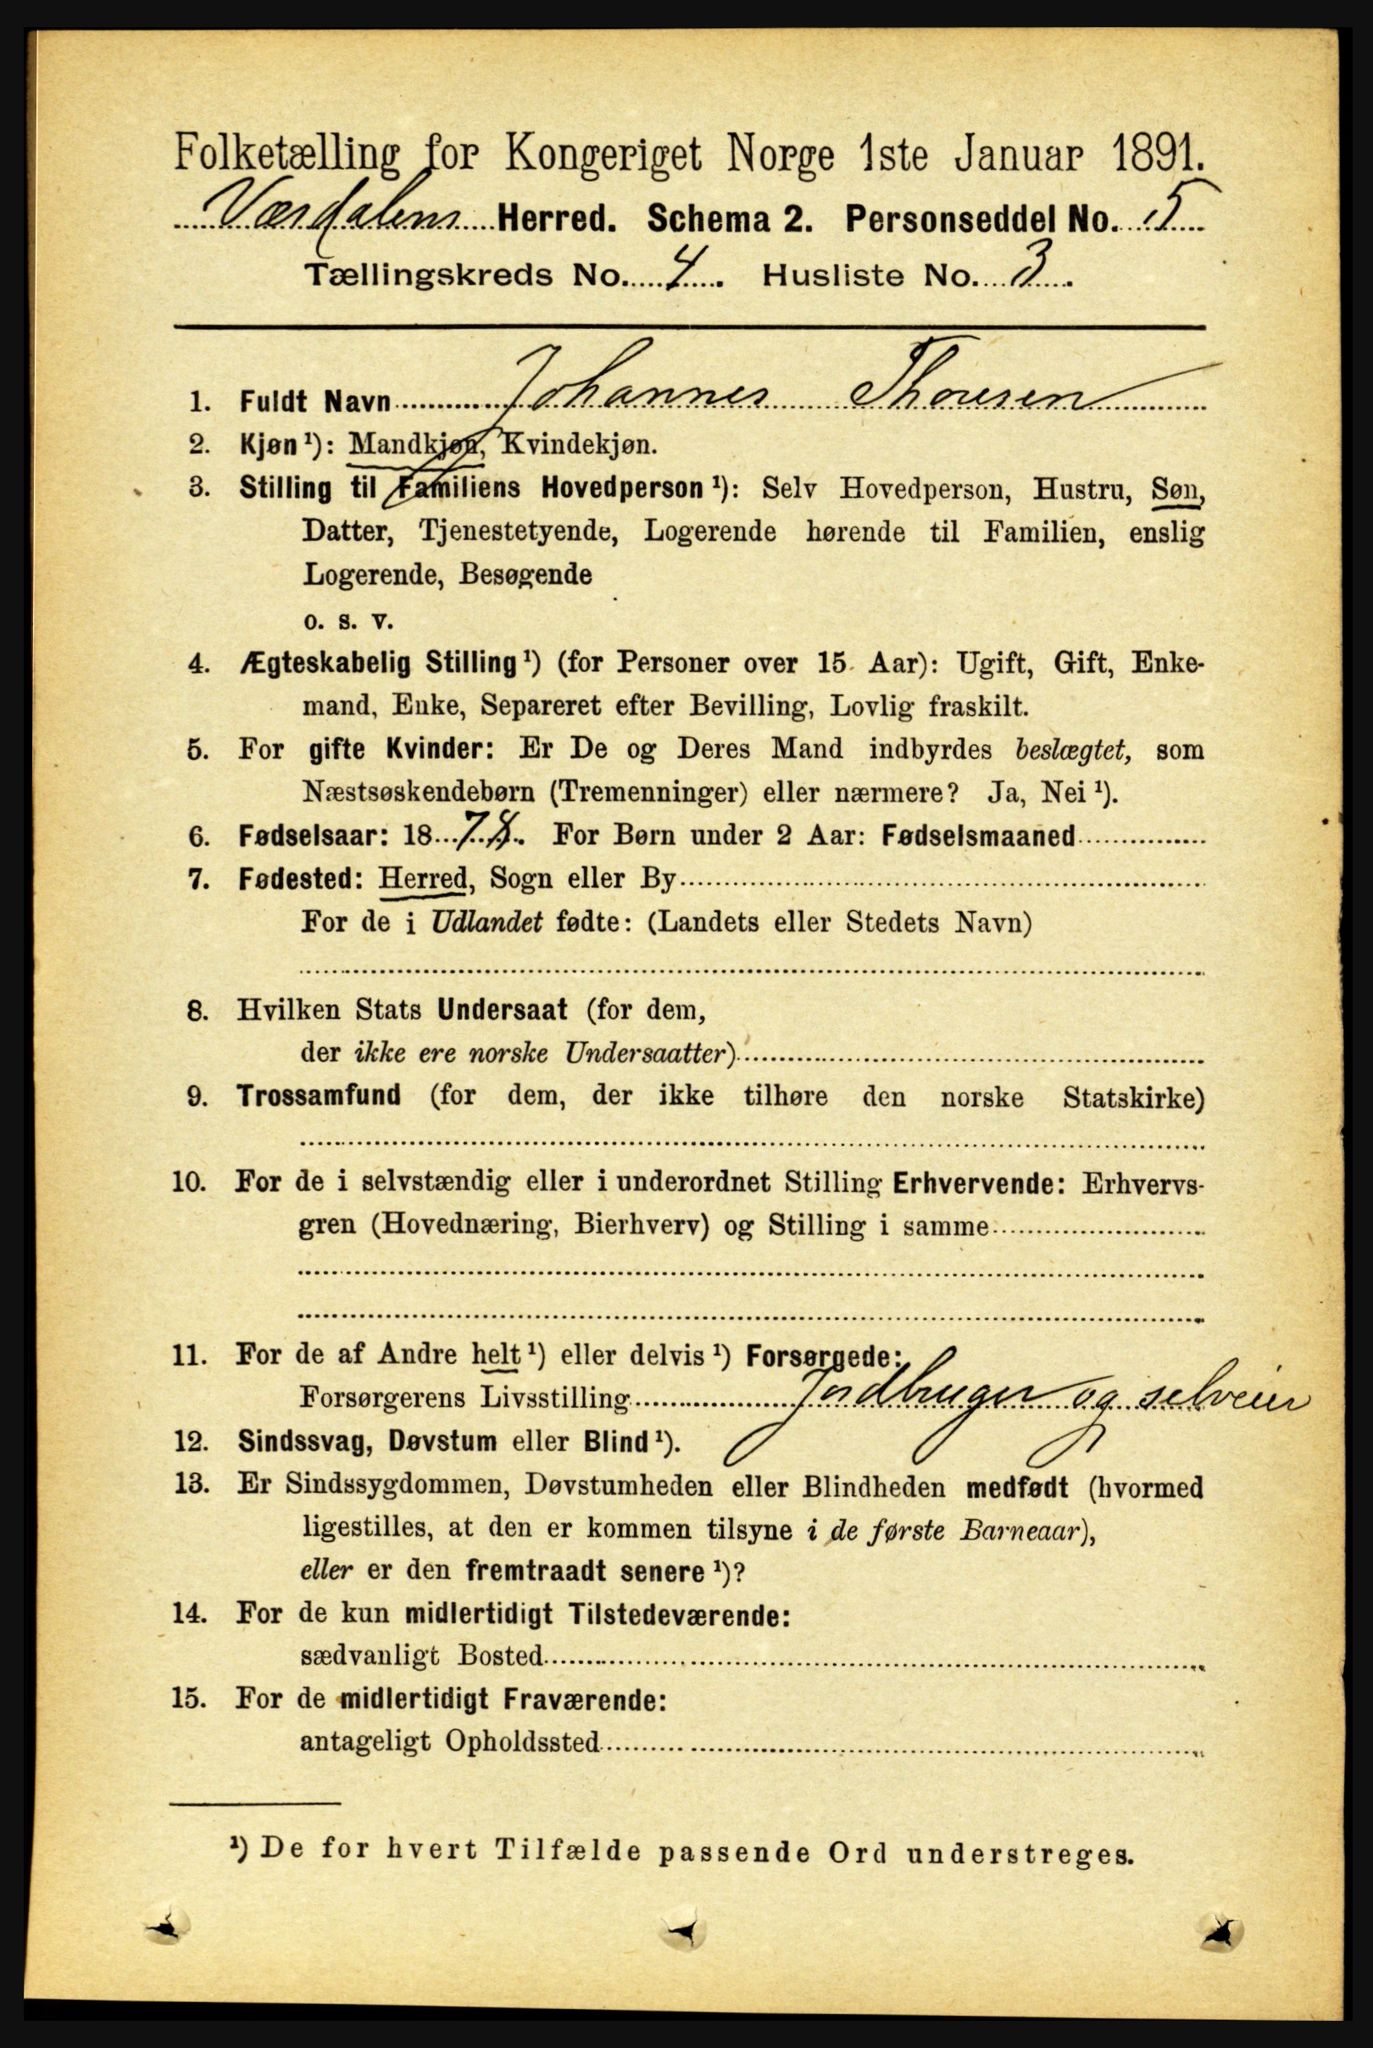 Folketælling for Kongeriget Norge 1ste Januar 1891.
Værdalens Herred. Schema 2. Personseddel No. 5
Tællingskreds No. 4. Husliste No. 3.
1. Fuldt Navn Johannes Thoresen
2. Kjøn¹): Mandkjøn, Kvindekjøn.
3. Stilling til Familiens Hovedperson¹): Selv Hovedperson, Hustru, Søn,
Datter, Tjenestetyende, Logerende hørende til Familien, enslig
Logerende, Besøgende
o. s. v.
4. Ægteskabelig Stilling¹) (for Personer over 15 Aar): Ugift, Gift, Enke-
mand, Enke, Separeret efter Bevilling, Lovlig fraskilt.
5. For gifte Kvinder: Er De og Deres Mand indbyrdes beslægtet, som
Næstsøskendebørn (Tremenninger) eller nærmere? Ja, Nei¹).
6. Fødselsaar: 18 78. For Børn under 2 Aar: Fødselsmaaned
7. Fødested: Herred, Sogn eller By
For de i Udlandet fødte: (Landets eller Stedets Navn)
8. Hvilken Stats Undersaat (for dem,
der ikke ere norske Undersaatter)
9. Trossamfund (for dem, der ikke tilhøre den norske Statskirke)
10. For de i selvstændig eller i underordnet Stilling Erhvervende: Erhvervs-
gren (Hovednæring, Bierhverv) og Stilling i samme
11. For de af Andre helt¹) eller delvis¹) Forsørgede:
Forsørgerens Livsstilling Jordbruger og selveier
12. Sindssvag, Døvstum eller Blind¹).
13. Er Sindssygdommen, Døvstumheden eller Blindheden medfødt (hvormed
ligestilles, at den er kommen tilsyne i de første Barneaar),
eller er den fremtraadt senere¹)?
14. For de kun midlertidigt Tilstedeværende:
sædvanligt Bosted
15. For de midlertidigt Fraværende:
antageligt Opholdssted
¹) De for hvert Tilfælde passende Ord understreges.